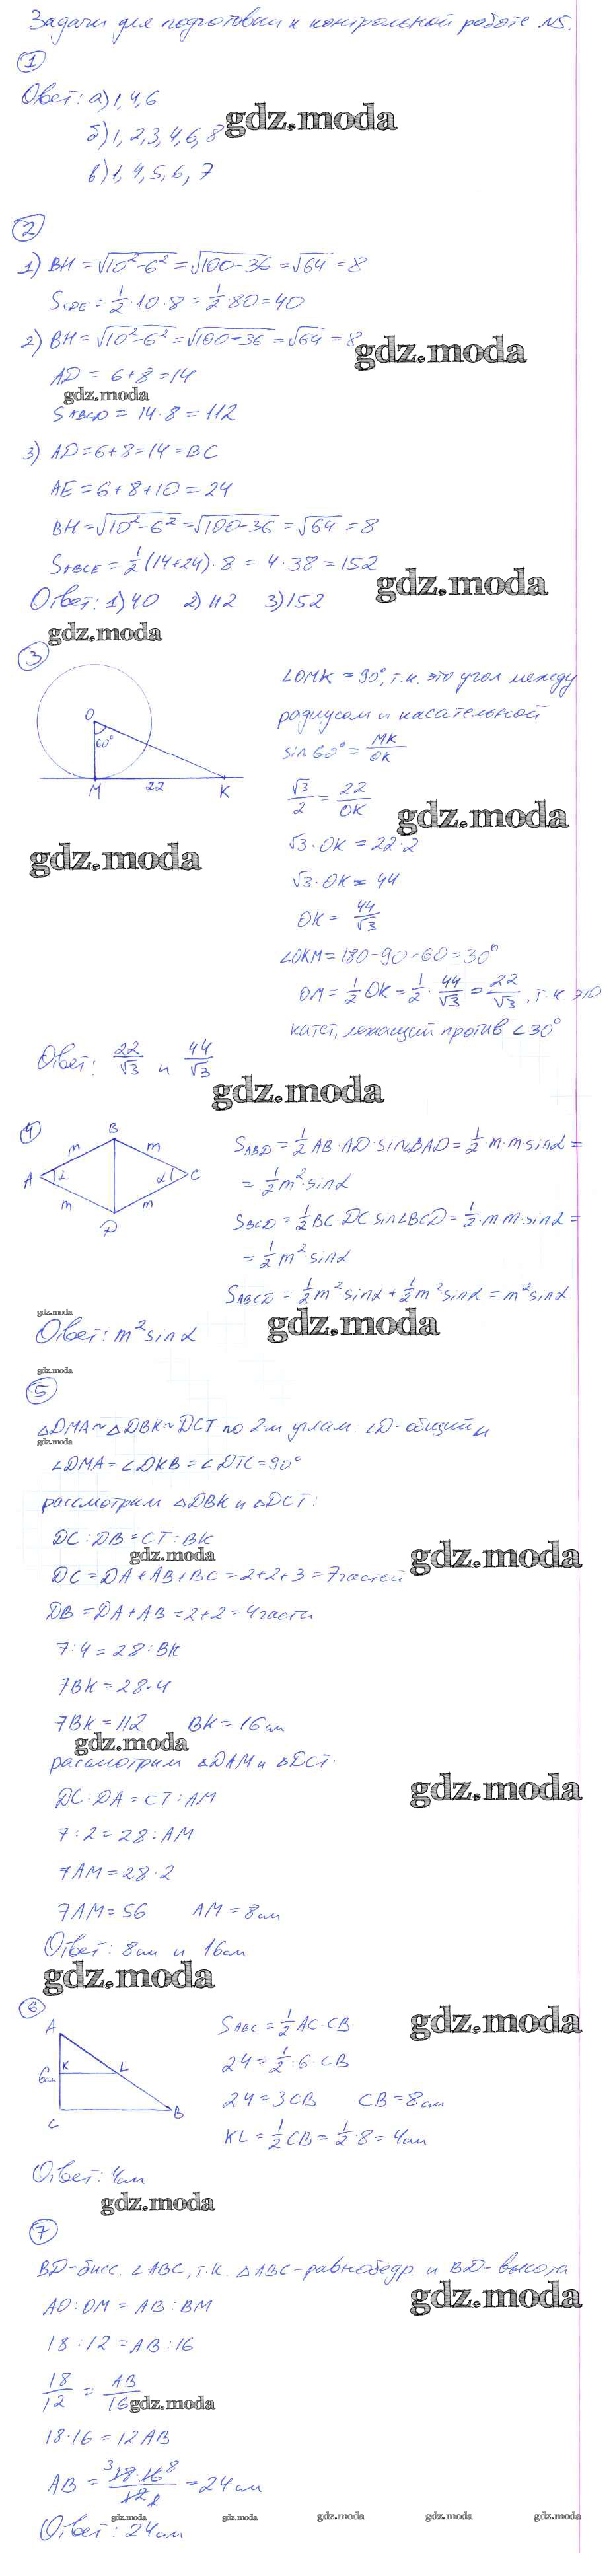 Задачи для подготовки к контрольной работе №5.
1
Ответ: а) 1, 4, 6
gdz.moda
б) 1, 2, 3, 4, 6, 8
в) 1, 4, 5, 6, 7
2
1) BH = √10²-6² = √100-36 = √64 = 8
SCDE = 1/2 · 10 · 8 = 1/2 · 80 = 40
2) BH = √10²-6² = √100-36 = √64 = 8
gdz.moda
AD = 6+8 = 14
gdz.moda
SABCD = 14 · 8 = 112
3) AD = 6+8 = 14 = BC
AE = 6+8+10 = 24
BH = √10²-6² = √100-36 = √64 = 8
SABCE = 1/2 (14+24) · 8 = 4 · 38 = 152
gdz.moda
Ответ: 1) 40 2) 112 3) 152
gdz.moda
3
O
60°
M 22 K
∠OMK = 90°, т.к. это угол между
радиусом и касательной
sin 60° = MK/OK
√3/2 = 22/OK
gdz.moda
√3 · OK = 22 · 2
gdz.moda
√3 · OK = 44
OK = 44/√3
∠OKM = 180-90-60 = 30°
OM = 1/2 OK = 1/2 · 44/√3 = 22/√3, т.к. это
катет, лежащий против ∠30°
Ответ: 22/√3 и 44/√3
gdz.moda
4
B
m m
A α α C
m m
D
SABD = 1/2 AB · AD · sin∠BAD = 1/2 m · m sinα =
= 1/2 m² · sinα
SBCD = 1/2 BC · DC sin∠BCD = 1/2 · m · m · sinα =
= 1/2 m² · sinα
SABCD = 1/2 m² sinα + 1/2 m² sinα = m² sinα
gdz.moda
gdz.moda
Ответ: m² sinα
gdz.moda
5
△DMA ~ △DBK ~ DCT по 2-м углам: ∠D-общий и
gdz.moda
∠DMA = ∠DKB = ∠DTC = 90°
рассмотрим △DBK и △DCT:
DC : DB = CT : BK
gdz.moda
gdz.moda
DC = DA + AB + BC = 2+2+3 = 7 частей
DB = DA + AB = 2+2 = 4 части
7 : 4 = 28 : BK
7BK = 28 · 4
7BK = 112 BK = 16 см
gdz.moda
рассмотрим △DAM и △DCT.
gdz.moda
DC : DA = CT : AM
7 : 2 = 28 : AM
7AM = 28 · 2
7AM = 56 AM = 8 см
Ответ: 8 см и 16 см
gdz.moda
6
A
K L
6см
C B
SABC = 1/2 AC · CB
gdz.moda
24 = 1/2 · 6 · CB
24 = 3CB CB = 8 см
KL = 1/2 CB = 1/2 · 8 = 4 см
Ответ: 4 см
gdz.moda
7
BD-бисс. ∠ABC, т.к. △ABC-равнобедр. и BD-высота
gdz.moda
AO : OM = AB : BM
18 : 12 = AB : 16
18/12 = AB/16
gdz.moda
18 · 16 = 12AB
AB = 18 · 16/12 = 24 см
gdz.moda gdz.moda gdz.moda gdz.moda gdz.moda
Ответ: 24 см